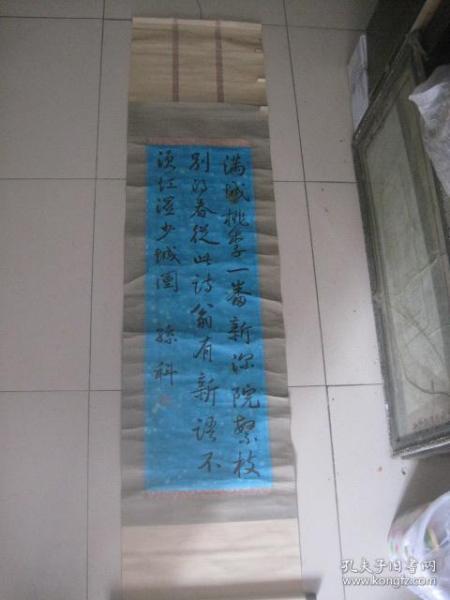 满城桃李一番新深院繁枝
别得春從此诗翁有新語不
须红湿少城園 孫科
孔夫子旧书网
www.kongfz.com